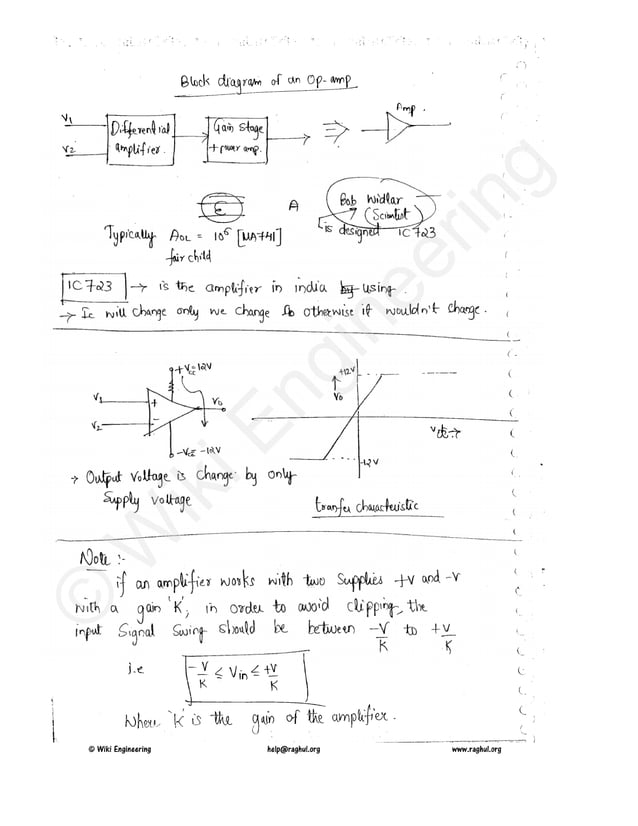 Block diagram of an Op-amp
V1
V2
Differential
amplifier.
Gain stage
+ power amp.
Amp.
A
Bob Widlar
(Scientist)
is designed IC723
Typically AOL = 10⁶ [MA741]
fair child
IC723 → is the amplifier in india by using.
→ Ic will change only we change Ib otherwise it wouldn't change.
+Vcc=12V
V1
+
V2
-
V0
-VEE -12V
+12V
↑
V0
-12V
→ Output voltage is change by only
supply voltage
tranfer characteristic
Note :-
if an amplifier works with two supplies +V and -V
with a gain 'K', in order to avoid clipping, the
input signal swing should be between -V/K to +V/K
i.e
-V/K ≤ Vin ≤ +V/K
Where 'K' is the gain of the amplifier.
© Wiki Engineering
help@raghul.org
www.raghul.org
© Wiki Engineering